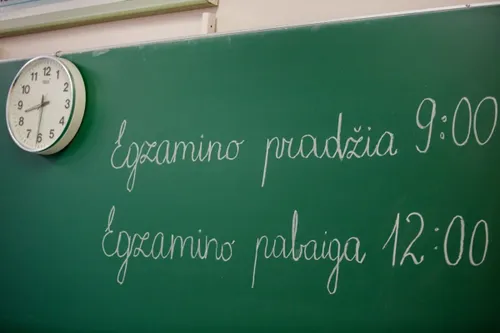 Egzamino pradžia 9:00
Egzamino pabaiga 12:00
12
1
2
3
4
5
6
7
8
9
10
11